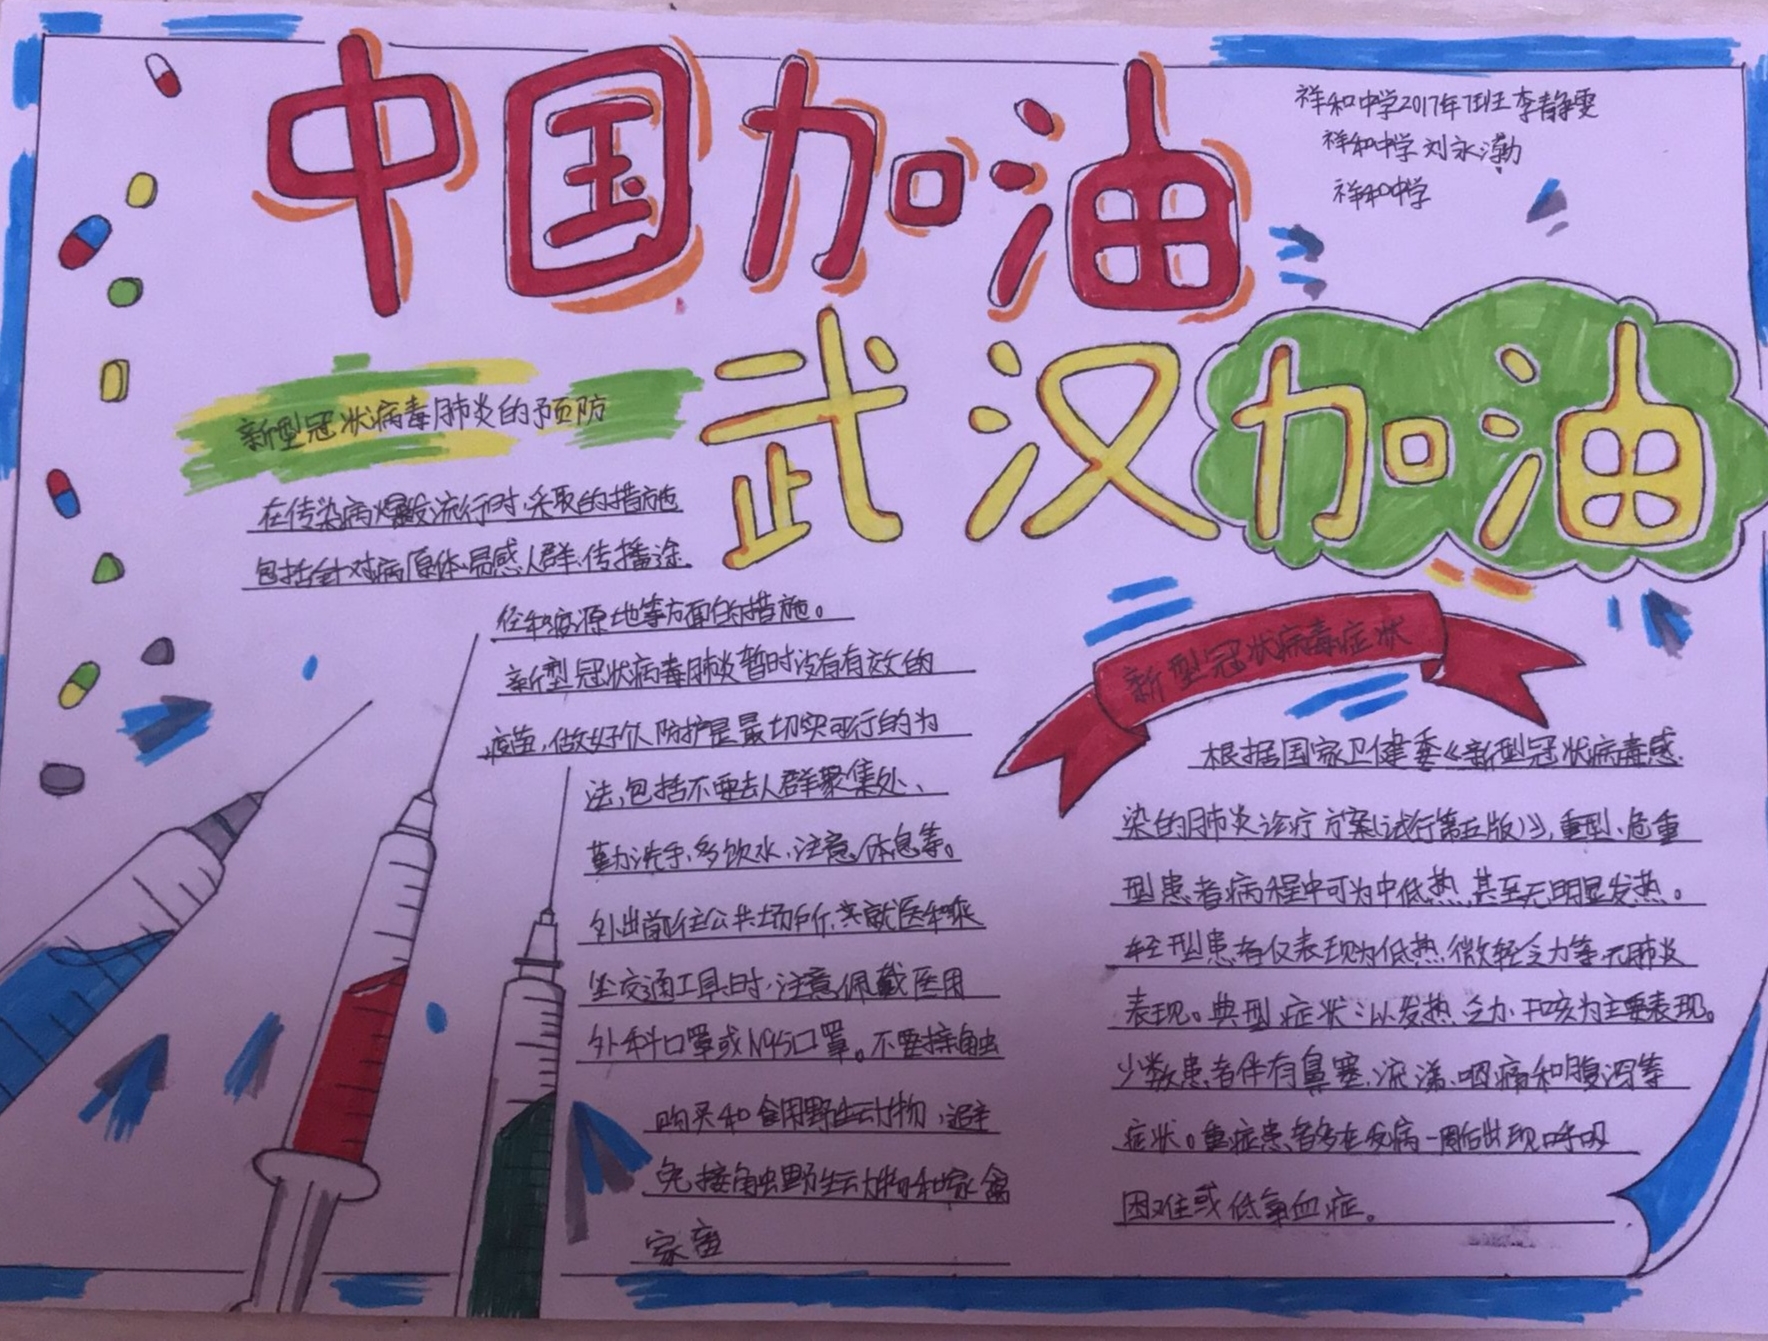 中国加油
祥和中学2017年7班 李静雯
祥和中学 刘永渤
祥和中学
武汉加油
新型冠状病毒肺炎的预防
在传染病爆发流行时,采取的措施
包括针对病原体、易感人群、传播途
径和疫源地等方面的措施。
新型冠状病毒肺炎暂时没有有效的
疫苗,做好个人防护是最切实可行的为
法,包括不要去人群聚集处、
勤洗手、多饮水、注意休息等。
外出前往公共场所、就医和乘
坐交通工具时,注意佩戴医用
外科口罩或N95口罩。不要接触
购买和食用野生动物,避
免接触野生动物和家禽
家畜
新型冠状病毒症状
根据国家卫健委《新型冠状病毒感
染的肺炎诊疗方案(试行第五版)》,重型、危重
型患者病程中可为中低热,甚至无明显发热。
轻型患者仅表现为低热,微轻乏力等,无肺炎
表现。典型症状:以发热、乏力、干咳为主要表现。
少数患者伴有鼻塞、流涕、咽痛和腹泻等
症状。重症患者多在发病一周后出现呼吸
困难或低氧血症。